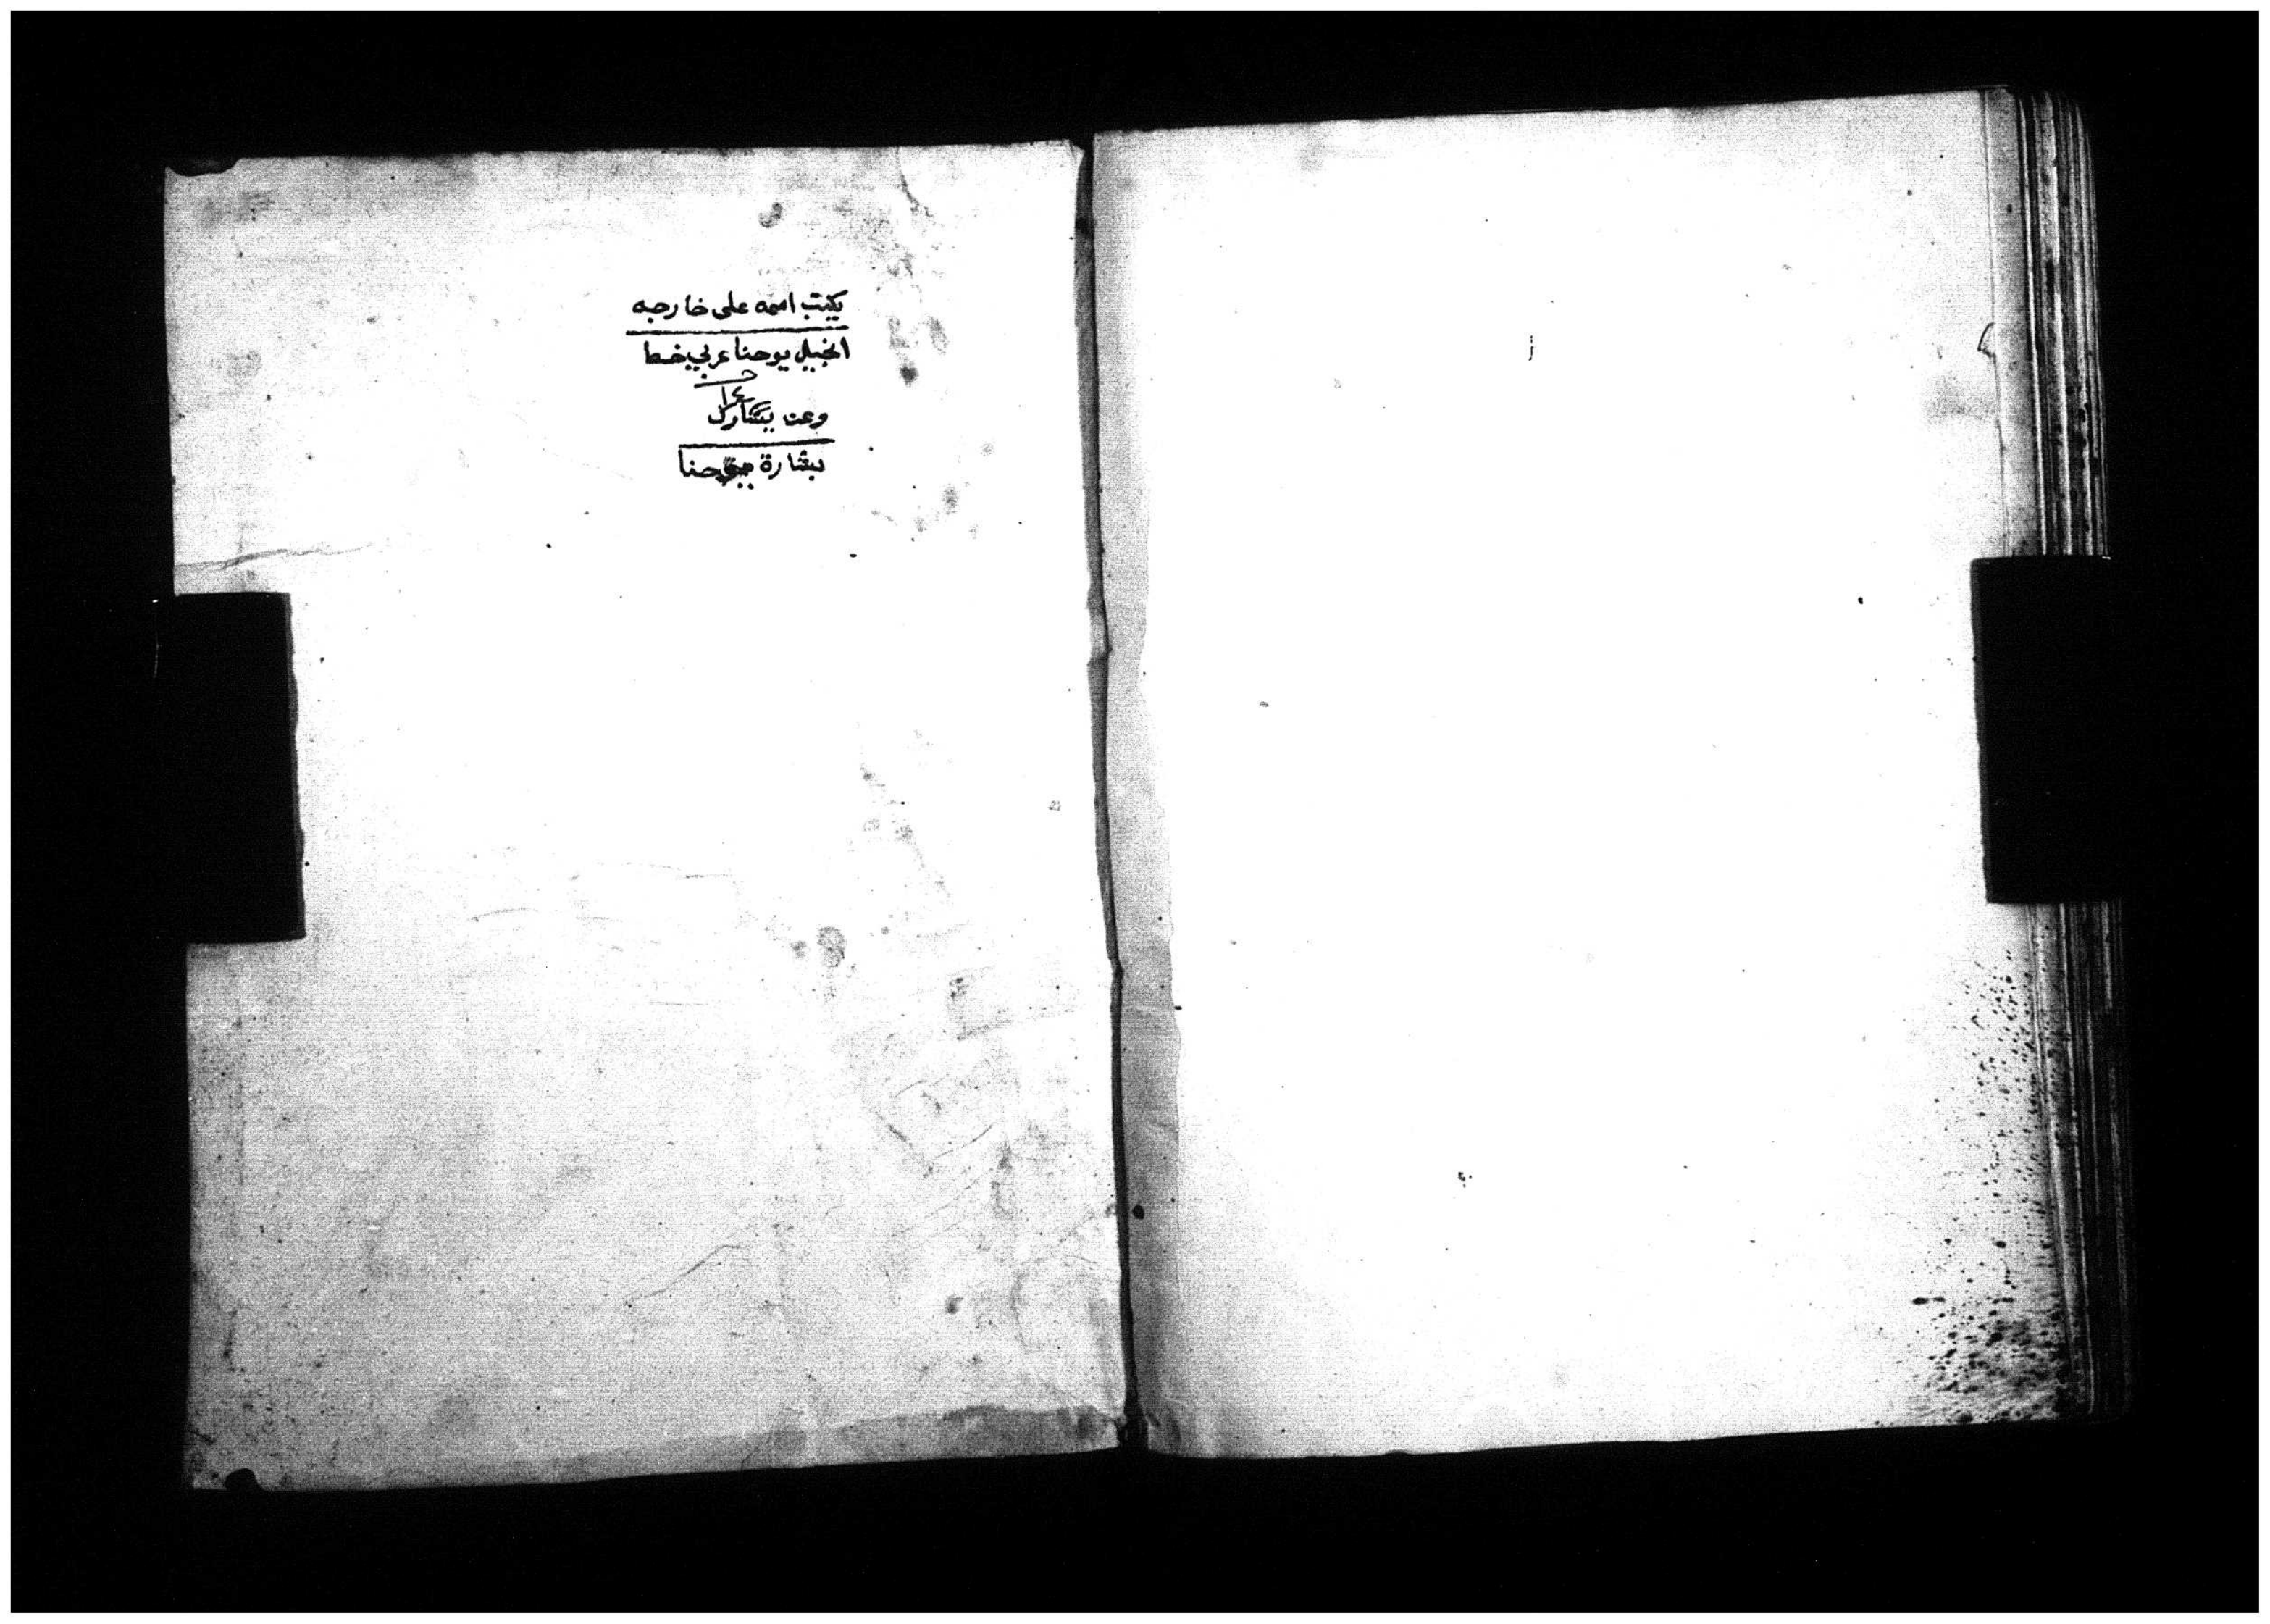 يكتب اسمه على خارجه
انجيل يوحنا عربي خط
وعن
بشارة يوحنا